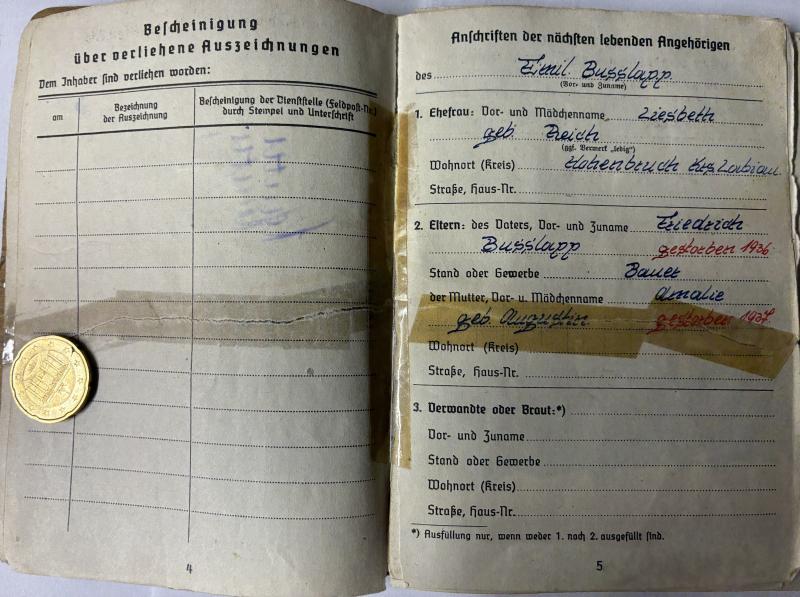 Bescheinigung
über verliehene Auszeichnungen
Dem Inhaber sind verliehen worden:
am
Bezeichnung
der Auszeichnung
Bescheinigung der Dienststelle (Feldpost-Nr.)
durch Stempel und Unterschrift
4
Anschriften der nächsten lebenden Angehörigen
des Emil Busslapp
(Vor- und Zuname)
1. Ehefrau: Vor- und Mädchenname Liesbeth
geb Reich
(ggf. Vermerk „ledig“)
Wohnort (Kreis) Hohenbruch Krs Labiau
Straße, Haus-Nr.
2. Eltern: des Vaters, Vor- und Zuname Friedrich
Busslapp gestorben 1936
Stand oder Gewerbe Bauer
der Mutter, Vor- u. Mädchenname Amalie
geb. Augustin gestorben 1937
Wohnort (Kreis)
Straße, Haus-Nr.
3. Verwandte oder Braut:*)
Vor- und Zuname
Stand oder Gewerbe
Wohnort (Kreis)
Straße, Haus-Nr.
*) Ausfüllung nur, wenn weder 1. noch 2. ausgefüllt sind.
5